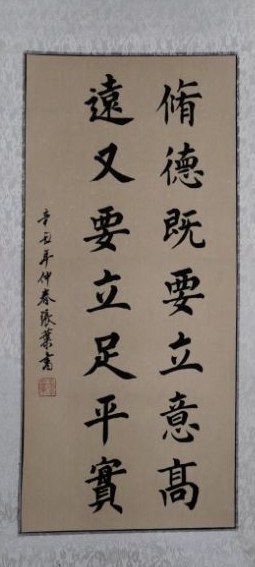 脩德既要立意高
遠又要立足平實
辛丑年仲春張葉高